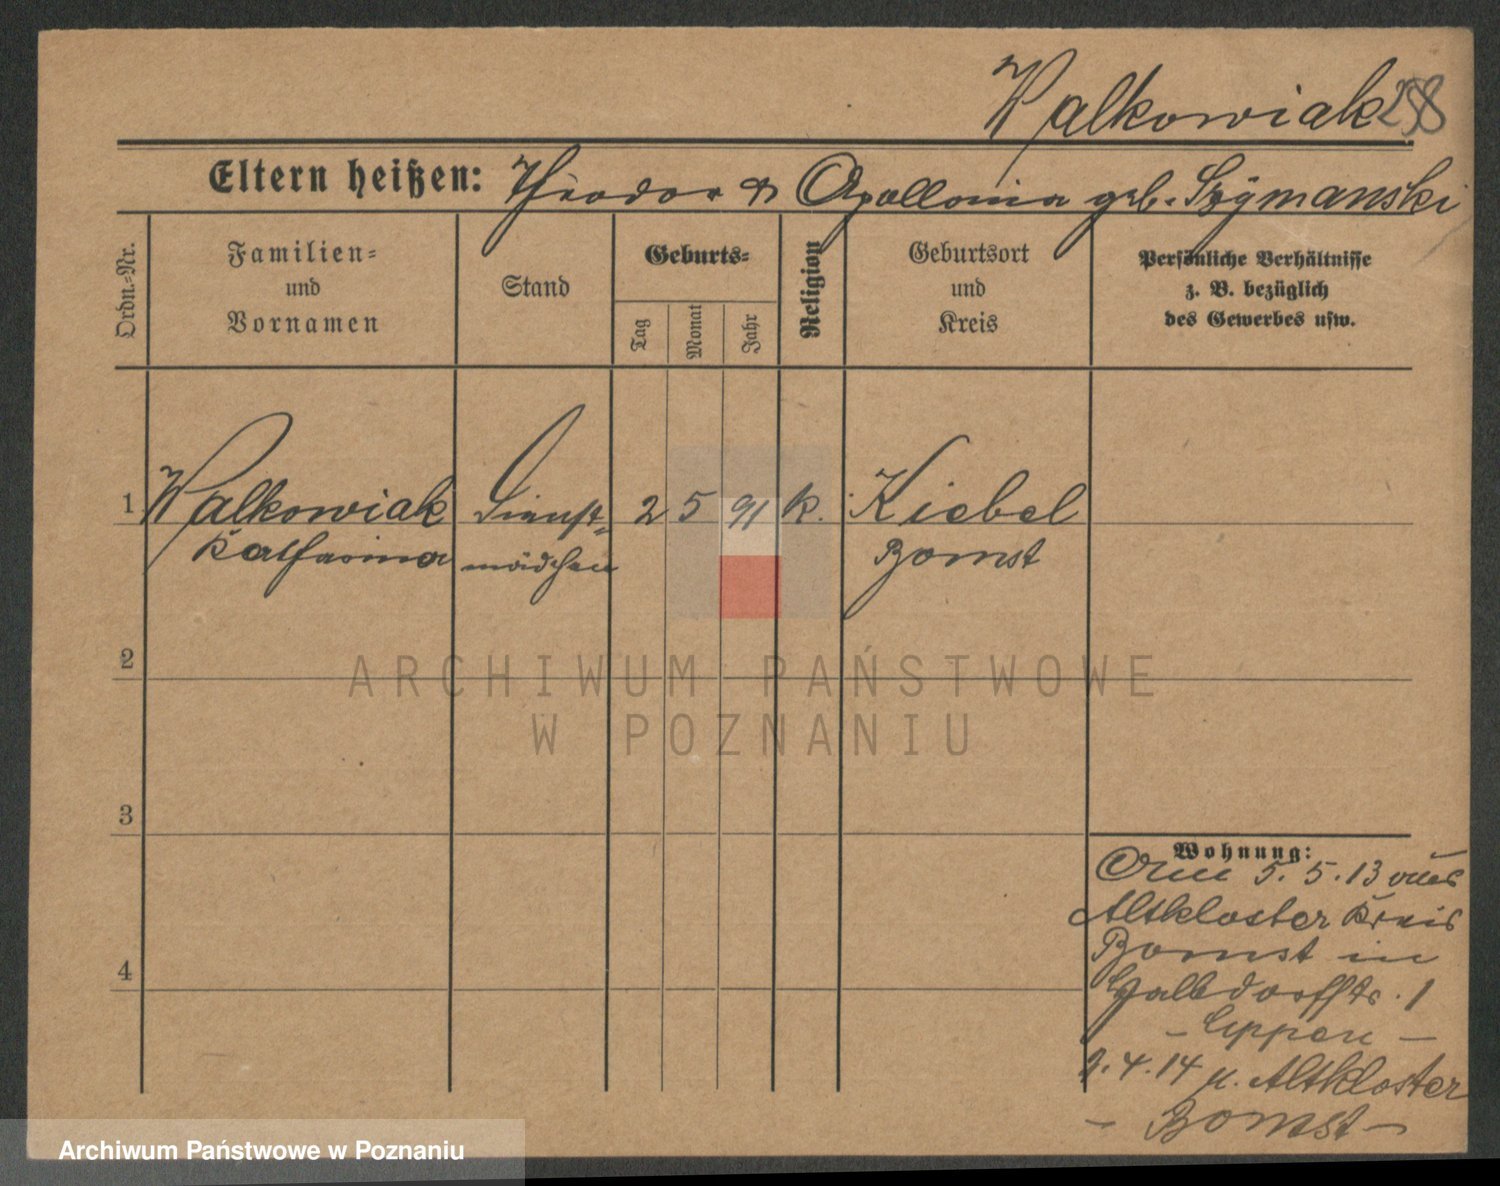 Walkowiak 258
Eltern heißen: Theodor & Apollonia geb. Szymanski
Ordn.-Nr.
Familien-
und
Vornamen
Stand
Geburts-
Tag
Monat
Jahr
Religion
Geburtsort
und
Kreis
Persönliche Verhältnisse
z. B. bezüglich
des Gewerbes usw.
1 Walkowiak Dienst- 2 5 91 k. Kiebel
Katharina mädchen Bomst
2
ARCHIWUM PAŃSTWOWE
W POZNANIU
3
Wohnung:
Am 5. 5. 13 aus
Altkloster Kreis
Bomst in
4
1
2. 4. 14 n. Altkloster
- Bomst -
Archiwum Państwowe w Poznaniu